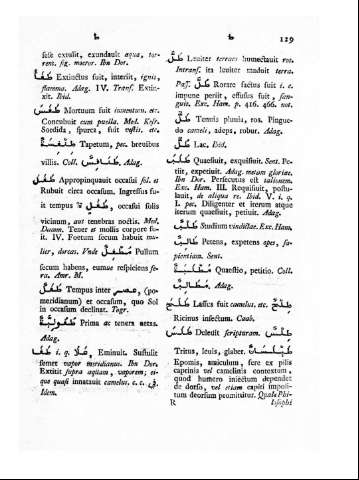 ط ط 119
sese extulit, exundauit aqua, tor-
rens. fig. moeror. Ibn Dor.
طفا Extinctus fuit, interiit, ignis,
flamma. Adag. IV. Trans. Extin-
xit. Ibid.
طفس Mortuum fuit iumentum. etc.
Concubuit cum puella. Med. Kefr.
Soedida, spurca, fuit vestis. etc.
طنفسة Tapetum, pec. breuibus
villis. Coll. طنافس. Adag.
طفل Appropinquauit occasui sol. et
Rubuit circa occasum. Ingressus fu-
it tempus طفل, occasui solis
vicinum, aut tenebras noctis. Med.
Duam. Tener et mollis corpore fu-
it. IV. Foetum secum habuit mu-
lier, dorcas. Vnde مطفل Pullum
secum habens, eumue respiciens fe-
ra. Amr. M.
طفل Tempus inter عصر, (po-
meridianum) et occasum, quo Sol
in occasum declinat. Togr.
طفولية Prima ac tenera aetas.
Adag.
طفا i. q. علا, Eminuit. Sustulit
semet vapor meridianus. Ibn Dor.
Extitit supra aquam, vaporem; ei-
que quasi innatauit camelus. c. c. في.
Idem.
طل Leuiter terraec humectauit ros.
Intrans. ita leuiter maduit terra.
Pass. طل Rorare factus fuit i. e.
impune periit, effusus fuit, san-
guis. Exc. Ham. p. 416. 466. not.
طل Tenuis pluuia, ros. Pingue-
do camelt, adeps, robur. Adag.
طل Lac. Ibid.
طلب Quaesiuit, exquisiuit. Sent. Pe-
tiit, expetiuit. Adag. metam gloriae.
Ibn Dor. Persecutus est talionem.
Exc. Ham. III. Requisiuit, postu-
lauit, de aliqua re. Ibid. V. i. q.
I. pec. Diligenter et iterum atque
iterum quaesiuit, petiuit. Adag.
طلب Studium vindictae. Exc. Ham.
طالب Petens, expetens opes, sa-
pientiam. Sent.
مطلبة Quaestio, petitio. Coll.
مطالب. Adag.
طلح Lassus fuit camelus, etc. طلح
Ricinus insectum. Caab.
طلس Deleuit scripturam. طلس
Tritus, leuis, glaber. طيلسان
Epomis, amiculum, fere ex pilis
caprinis vel camelinis contextum,
quod humero iniectum dependet
de dorso, vel etiam capiti imposi-
tum deorsum promittitur. Quale Phi-
R losophi